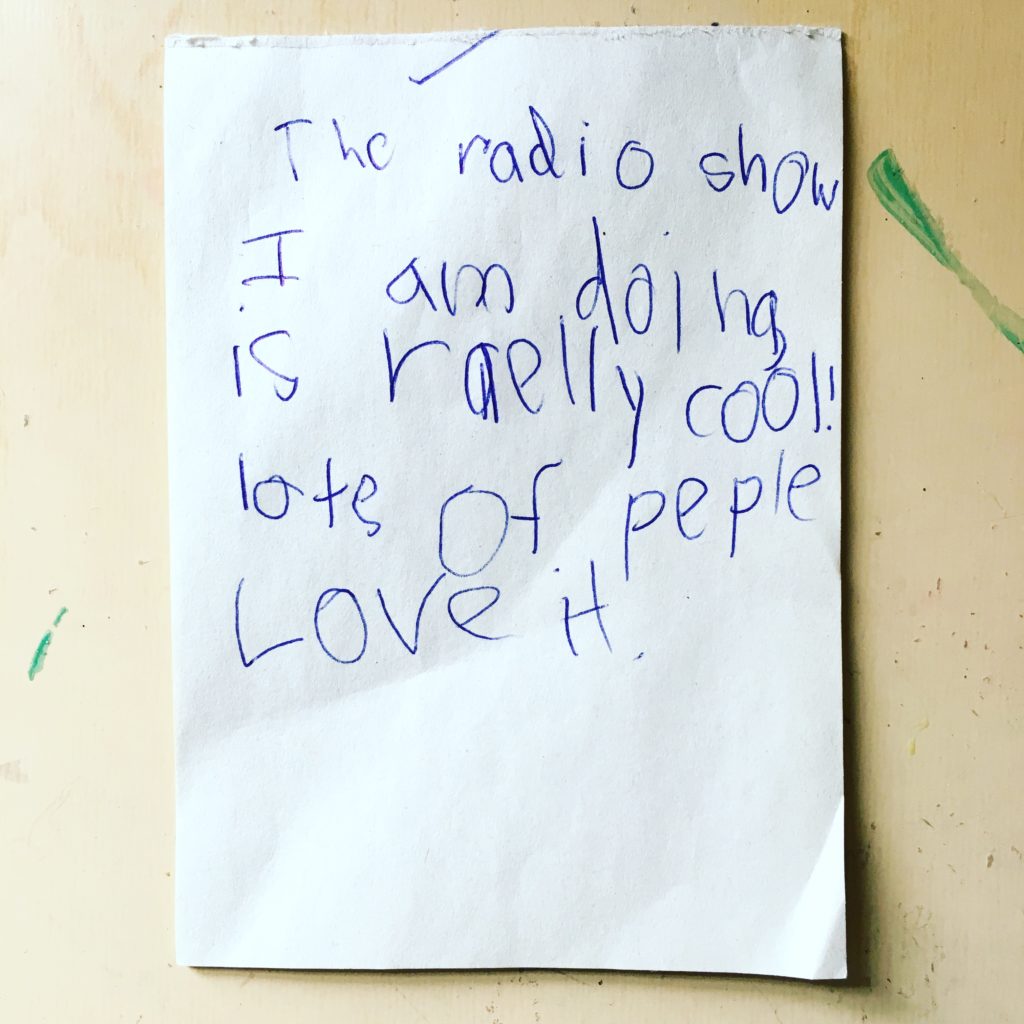 The radio show
I am doing
is raelly cool!
lots of peple
Love it.